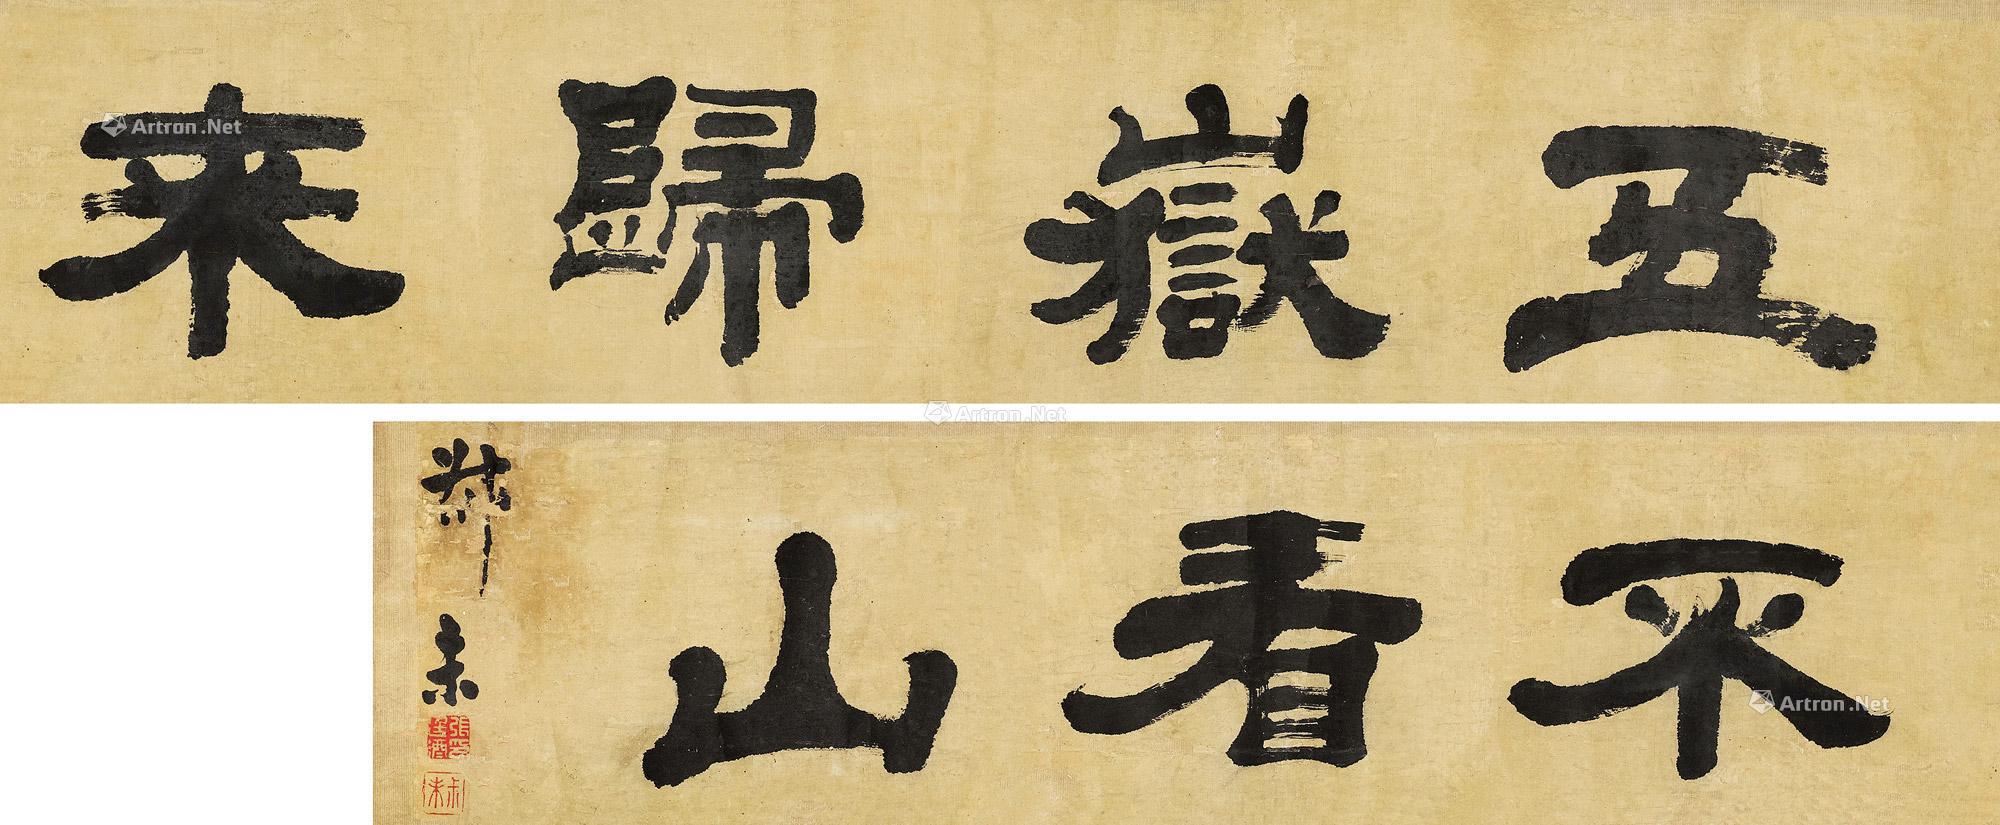 五嶽歸來
不看山
叔未
Artron.Net
Artron.Net
Artron.Net